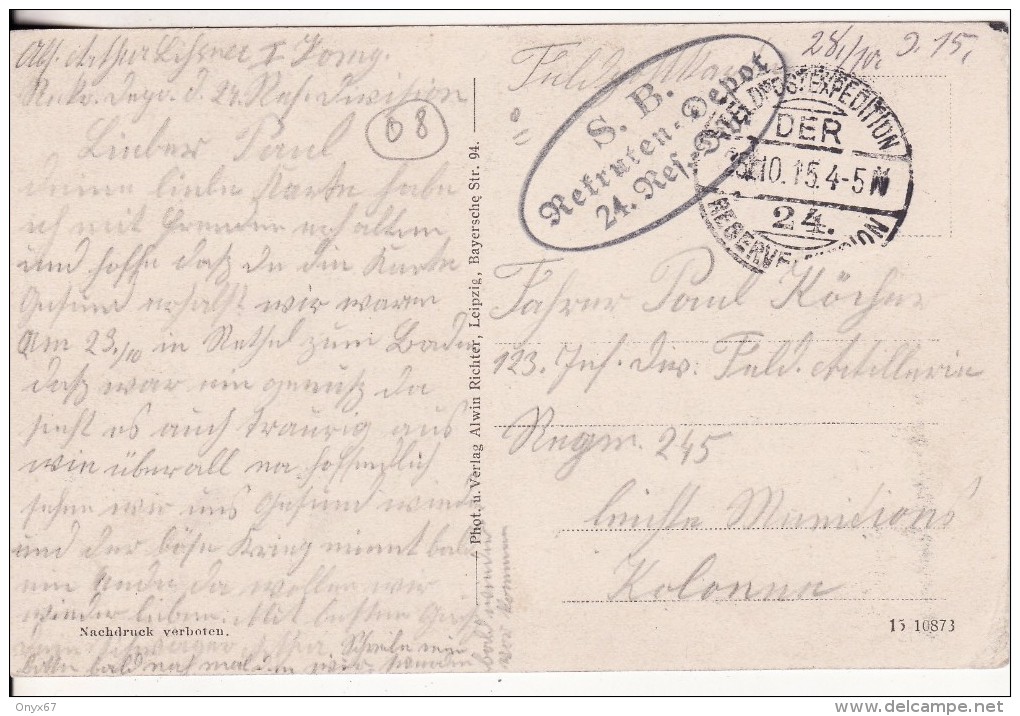 Abs. Arthur I. Komp.
Rekr. Depo. d. 24. Res. Division
Lieber Paul
deine liebe Karte habe
ich mit Freuden erhalten
und hoffe daß du die Karte
Gesund erhalst wir waren
am 23./10 in Rethel zum Baden
daß war ein genuß da
sieht es auch traurig aus
wie überall na hoffendlich
sehen wir uns Gesund wieder
und der böse Krieg nimmt bald
ein Ende da wollen wir
wieder leben. Mit besten Grüß
Schwager Arthur Schreibe mir
bitte bald noch mal
Nachdruck verboten.
Phot. u. Verlag Alwin Richter, Leipzig, Bayersche Str. 94.
08
28./10. 15.
S. B.
Rekruten-Depot
24. Res.
FELDPOSTEXPEDITION
DER
10.15.4-5N
24.
Fahrer Paul Köchner
123. Inf. Div. Feld. Artillerie
Regm. 245
leichte Munitions
Kolonne
15 10873
Onyx67